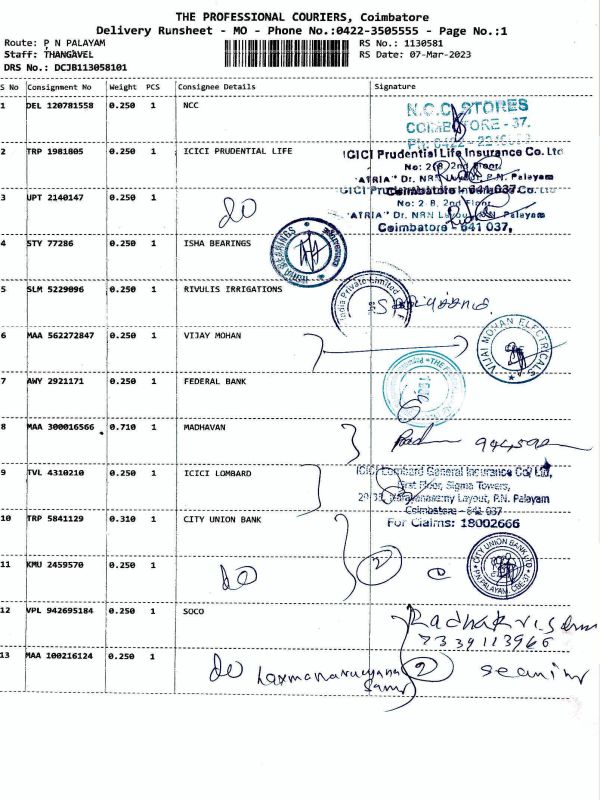 THE PROFESSIONAL COURIERS, Coimbatore
Delivery Runsheet - MO - Phone No.:0422-3505555 - Page No.:1
Route: P N PALAYAM
RS No.: 1130581
Staff: THANGAVEL
RS Date: 07-Mar-2023
DRS No.: DCJB113058101
S No Consignment No Weight PCS Consignee Details Signature
1 DEL 120781558 0.250 1 NCC
N.C.C STORES
COIMBATORE - 37.
2 TRP 1981805 0.250 1 ICICI PRUDENTIAL LIFE
ICICI Prudential Life Insurance Co. Ltd
No: 2 B, 2nd Floor,
"ATRIA" Dr. NRN Layout, P.N. Palayam
Coimbatore - 641 037.
3 UPT 2140147 0.250 1 do
No: 2 B, 2nd Floor,
"ATRIA" Dr. NRN Layout, P.N. Palayam
Coimbatore - 641 037,
4 STY 77286 0.250 1 ISHA BEARINGS
5 SLM 5229096 0.250 1 RIVULIS IRRIGATIONS
India Private Limited
6 MAA 562272847 0.250 1 VIJAY MOHAN
VIJAI MOHAN ELECTRICALS
7 AWY 2921171 0.250 1 FEDERAL BANK
8 MAA 300016566 0.710 1 MADHAVAN
9 TVL 4310210 0.250 1 ICICI LOMBARD
ICICI Lombard General Insurance Co. Ltd,
First Floor, Sigma Towers,
Narayanasamy Layout, P.N. Palayam
Coimbatore - 641 037
For Claims: 18002666
10 TRP 5841129 0.310 1 CITY UNION BANK
CITY UNION BANK LTD
P.N PALAYAM, CBE-37
11 KMU 2459570 0.250 1 do 2
12 VPL 942695184 0.250 1 SOCO
7339113966
13 MAA 100216124 0.250 1 do
2